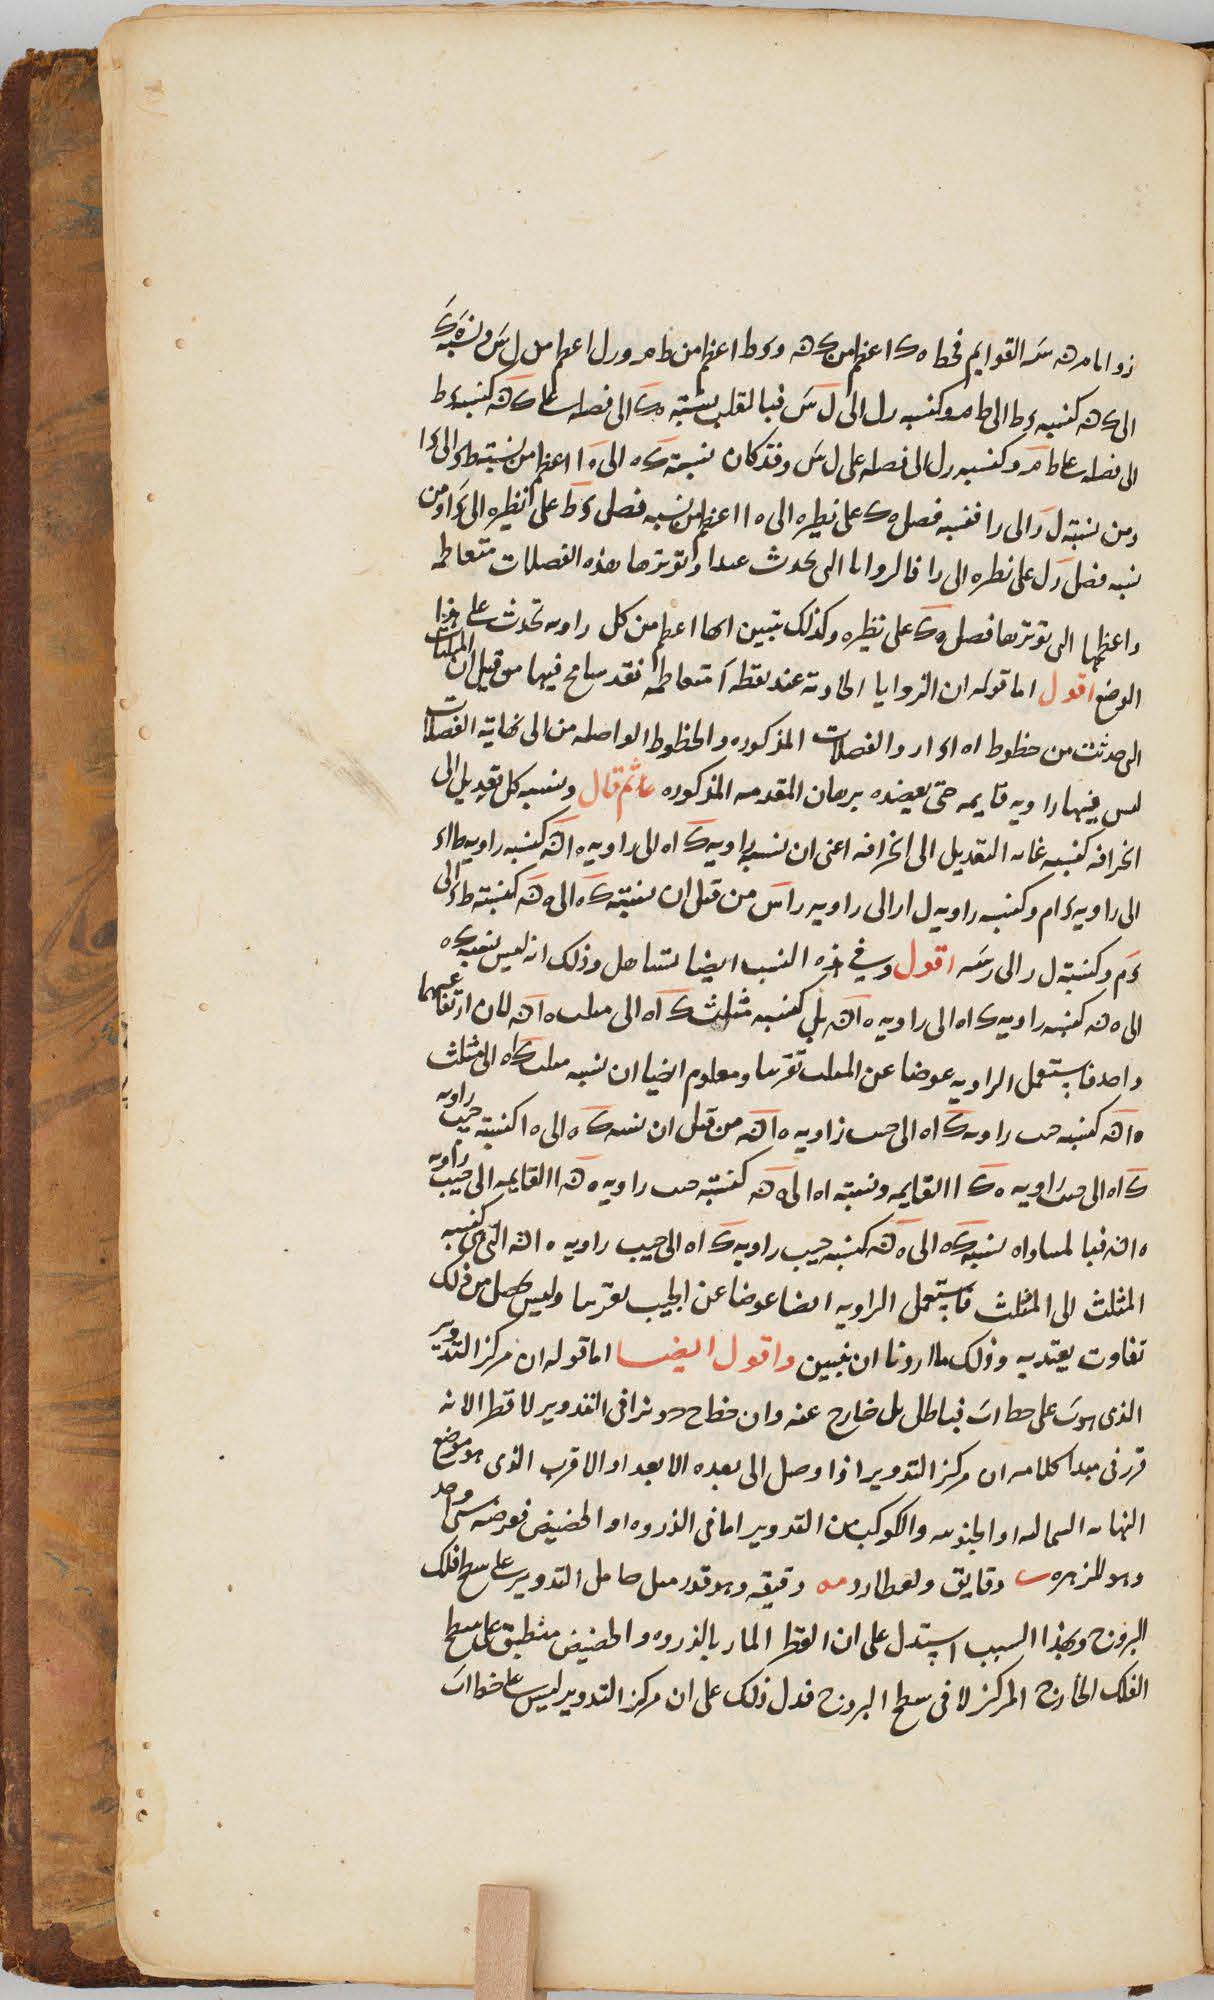 زوايا م هـ س القوايم فخط ه ك اعظم من ك هـ و ء ط اعظم من ط م و ر ل اعظم من ل س ونسبة ه ك
الى ك هـ كنسبه ء ط الى ط م وكنسبه ر ل الى ل س فبالقلب نسبته ه ك الى فصله على ك هـ كنسبه ء ط
الى فصله على ط م وكنسبه ر ل الى فصله على ل س وقد كان نسبته ك ه الى ه ا اعظم من نسبته ط ء الى ء ا
ومن نسبته ل ر الى ر ا فنسبه فصل ه ك على نظيره الى ه ا اعظم من نسبه فصل ء ط على نظيره الى ء ا ومن
نسبه فصل ر ل على نظره الى ر ا فالزوايا التى تحدث عند ا وتوترها هذه الفصلات متعاظمه
واعظمها التى توترها فصل ه ك على نظيره وكذلك تبين انها اعظم من كل زاويه تحدث على هذا
الوضع اقول اما قوله ان الزوايا الحادثة عند نقطه ا متعاظمه فقد سامح فيها من قبل ان المثلثات
التى حدثت من خطوط ا ه ا ء ا ر والفصلات المذكوره والخطوط الواصله من ا الى نهاية الفصلات
ليس فيها زاويه قايمه حتى يعضده برهان المقدمه المذكوره ثم قال ونسبه كل تعديل الى
انحرافه كنسبه غايه التعديل الى انحرافه اعنى ان نسبه زاويه ك ا ه الى زاويه ه ا هـ كنسبه زاويه ط ا ء
الى زاويه ء ا م وكنسبه زاويه ل ا ر الى زاويه ر ا س من قبل ان نسبته ك ه الى ه هـ كنسبته ط ء الى
ء م وكنسبته ل ر الى ر س اقول وفي هذه النسب ايضا تساهل وذلك انه ليس نسبه ك ه
الى ه هـ كنسبه زاويه ك ا ه الى زاويه ه ا هـ بل كنسبه مثلث ك ا ه الى مثلث ه ا هـ لان ارتفاعهما
واحد فاستعمل الزاويه عوضا عن المثلث تقريبا ومعلوم ايضا ان نسبه مثلث ك ا ه الى مثلث
ه ا هـ كنسبه جيب زاويه ك ا ه الى جيب زاويه ه ا هـ من قبل ان نسبه ك ه الى ه ا كنسبته جيب زاويه
ك ا ه الى جيب زاويه ه ك ا القايمه ونسبته ا ه الى ه هـ كنسبته جيب زاويه ه هـ ا القايمه الى جيب زاويه
ه ا هـ فبالمساواه نسبه ك ه الى ه هـ كنسبه جيب زاويه ك ا ه الى جيب زاويه ه ا هـ التى هي كنسبه
المثلث الى المثلث فاستعمل الزاويه ايضا عوضا عن الجيب تقريبا وليس يحصل من ذلك
تفاوت يعتد به وذلك ما اردنا ان نبين واقول ايضا اما قوله ان مركز التدوير
الذى هو ب على خط ا ب فباطل بل خارج عنه وان خط ح د وتر فى التدوير لا قطر لانه
قرر فى مبدا كلامه ان مركز التدوير اذا وصل الى بعده الابعد او الاقرب الذى هو موضع
النهايه الشماليه او الجنوبيه والكوكب من التدوير اما فى الذروه او الحضيض فعرضه شى واحد
وهو للزهره ى دقايق ولعطارد مه دقيقه وهو قدر ميل حامل التدوير على سطح فلك
البروج وبهذا السبب استدل على ان القطر المار بالذروه والحضيض منطبق على سطح
الفلك الخارج المركز لا فى سطح البروج فدل ذلك على ان مركز التدوير ليس على خط ا ب